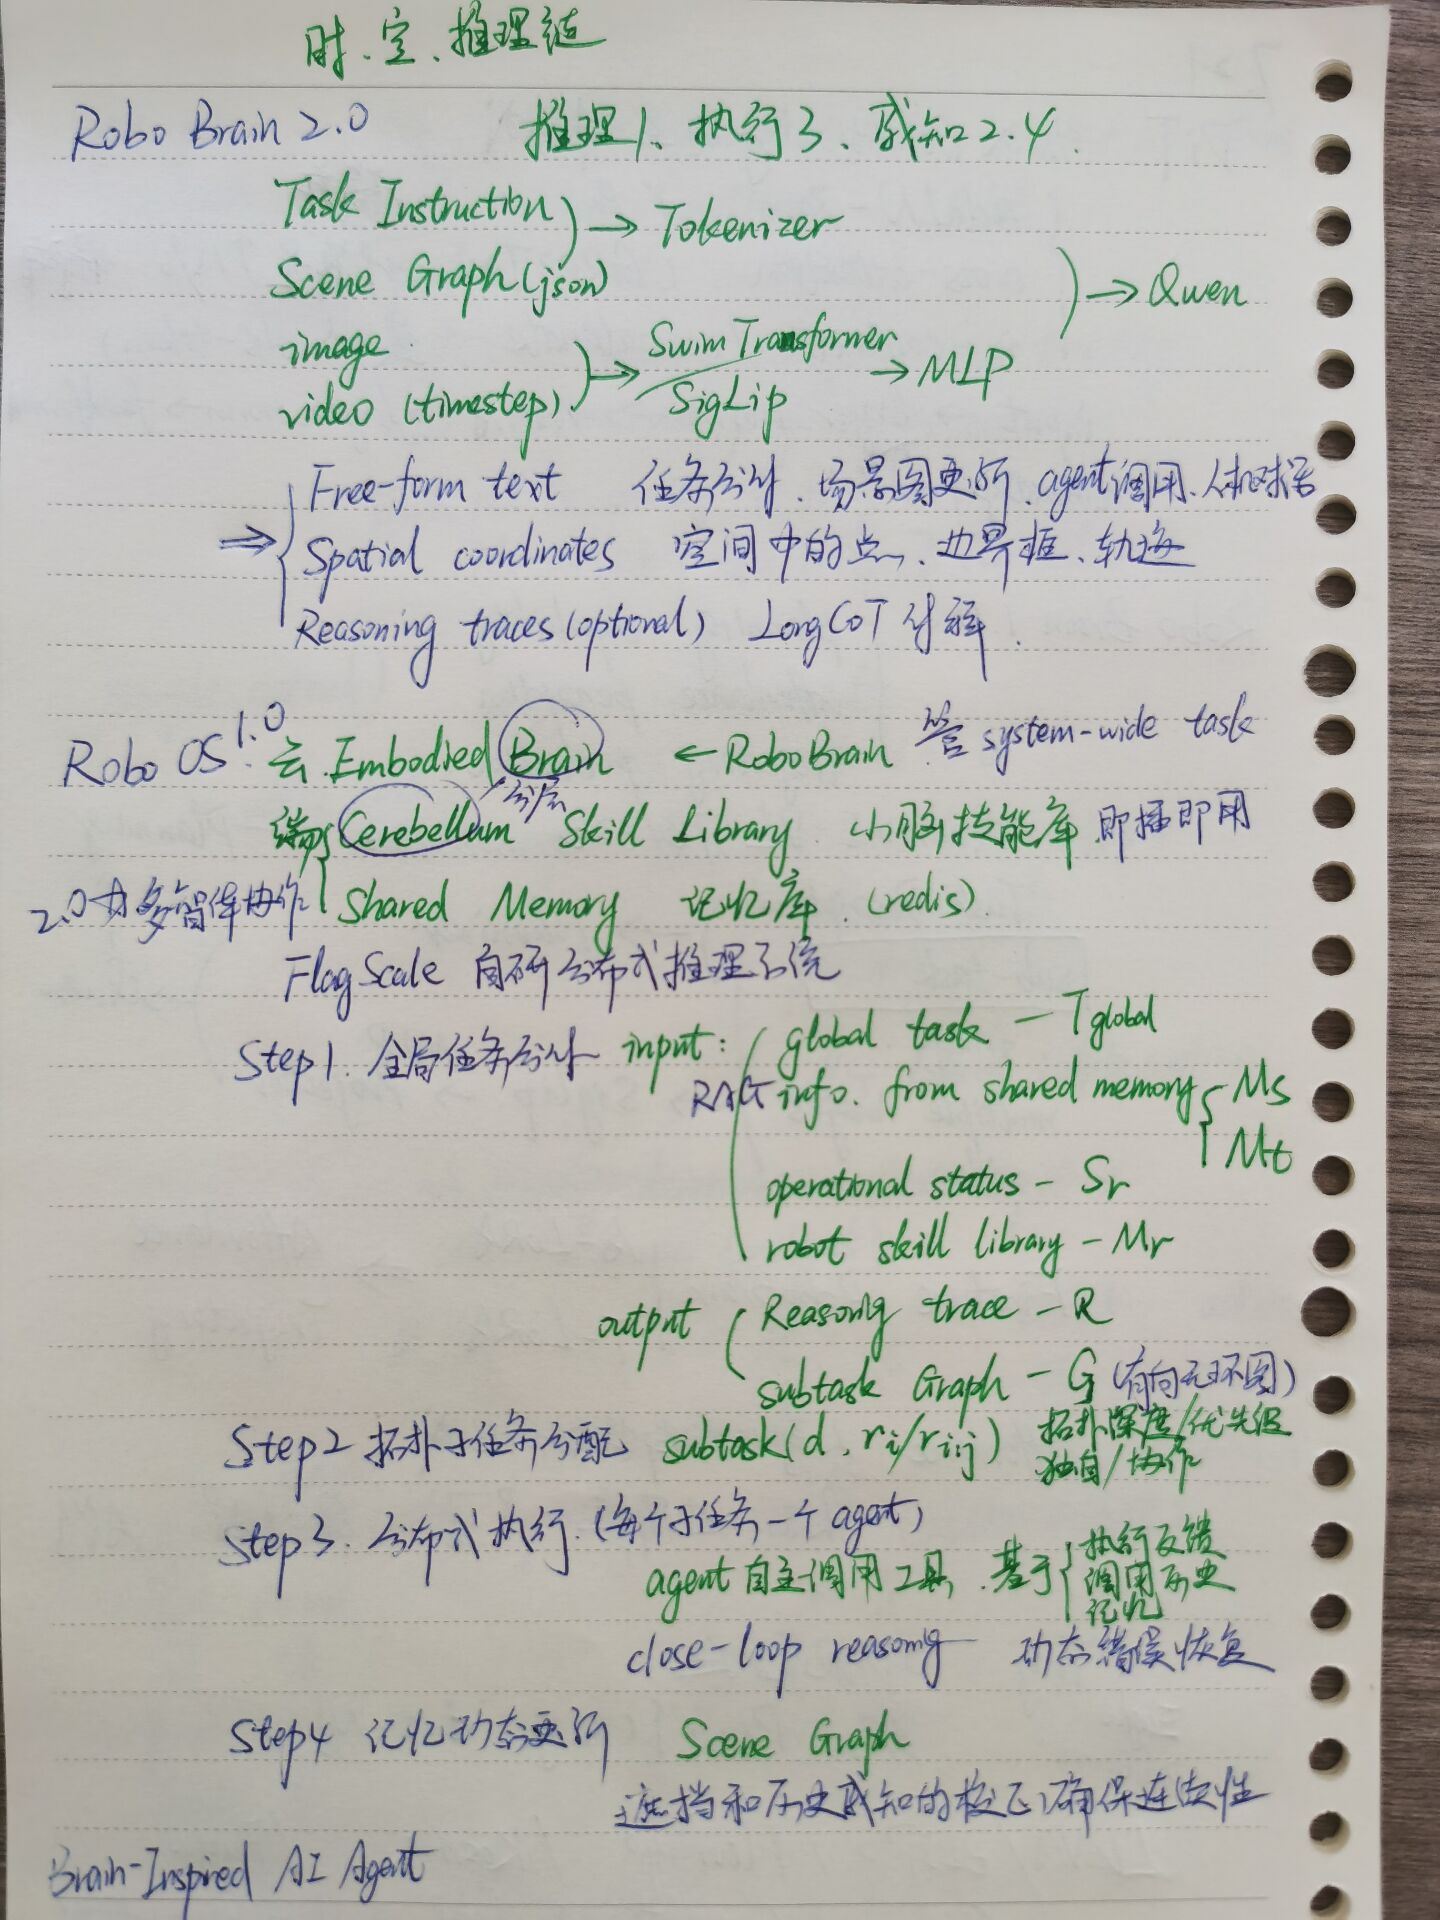 时、空、推理链
Robo Brain 2.0 推理1、执行3、感知2.4.
Task Instruction → Tokenizer
Scene Graph (json) → Qwen
image Swim Transformer
video (timestep) → SigLip → MLP
Free-form text 任务分解、场景图更新、agent调用、人机对话
⇒ Spatial coordinates 空间中的点、边界框、轨迹
Reasoning traces (optional) LongCoT 分解.
Robo OS 1.0 云 Embodied Brain ← RoboBrain 管 system-wide task
分层
端 Cerebellum Skill Library 小脑技能库 即插即用
2.0为多智体协作 Shared Memory 记忆库. (redis).
FlagScale 自研分布式推理系统
Step1. 全局任务分解 input: global task — Tglobal
RAG info. from shared memory Ms
Mt
operational status — Sr
robot skill library — Mr
output Reasonig trace — R
subtask Graph — G (有向无环图)
Step2 拓扑子任务分配 subtask(d, ri/rij) 拓扑深度/优先级
独自/协作
Step3. 分布式执行. (每个子任务一个 agent)
agent自主调用工具. 基于 执行反馈
调用历史
记忆
close-loop reasonig 动态错误恢复
Step4 记忆动态更新 Scene Graph
遮挡和历史感知的校正,确保连续性
Brain-Inspired AI Agent